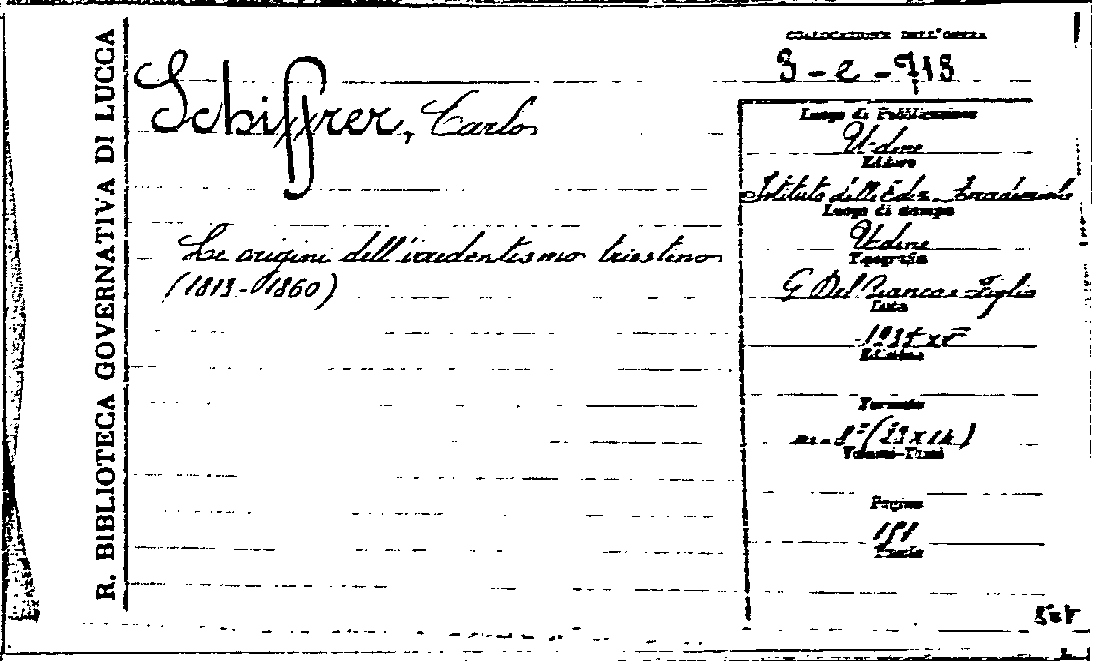 R. BIBLIOTECA GOVERNATIVA DI LUCCA
COLLOCAZIONE DELL'OPERA
Schiffrer, Carlo
Le origini dell'irredentismo triestino
(1813-1860)
Luogo di Pubblicazione
Udine
Editore
Istituto delle Ediz. Accademiche
Luogo di stampa
Udine
Tipografia
G Del Bianco e Figlio
Data
1937 XV
Edizione
Formato
Volumi-Tomi
Pagine
Tavole